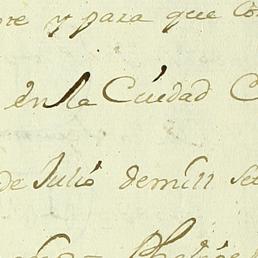 re y para que co
en la Ciudad C
de Julio demill set